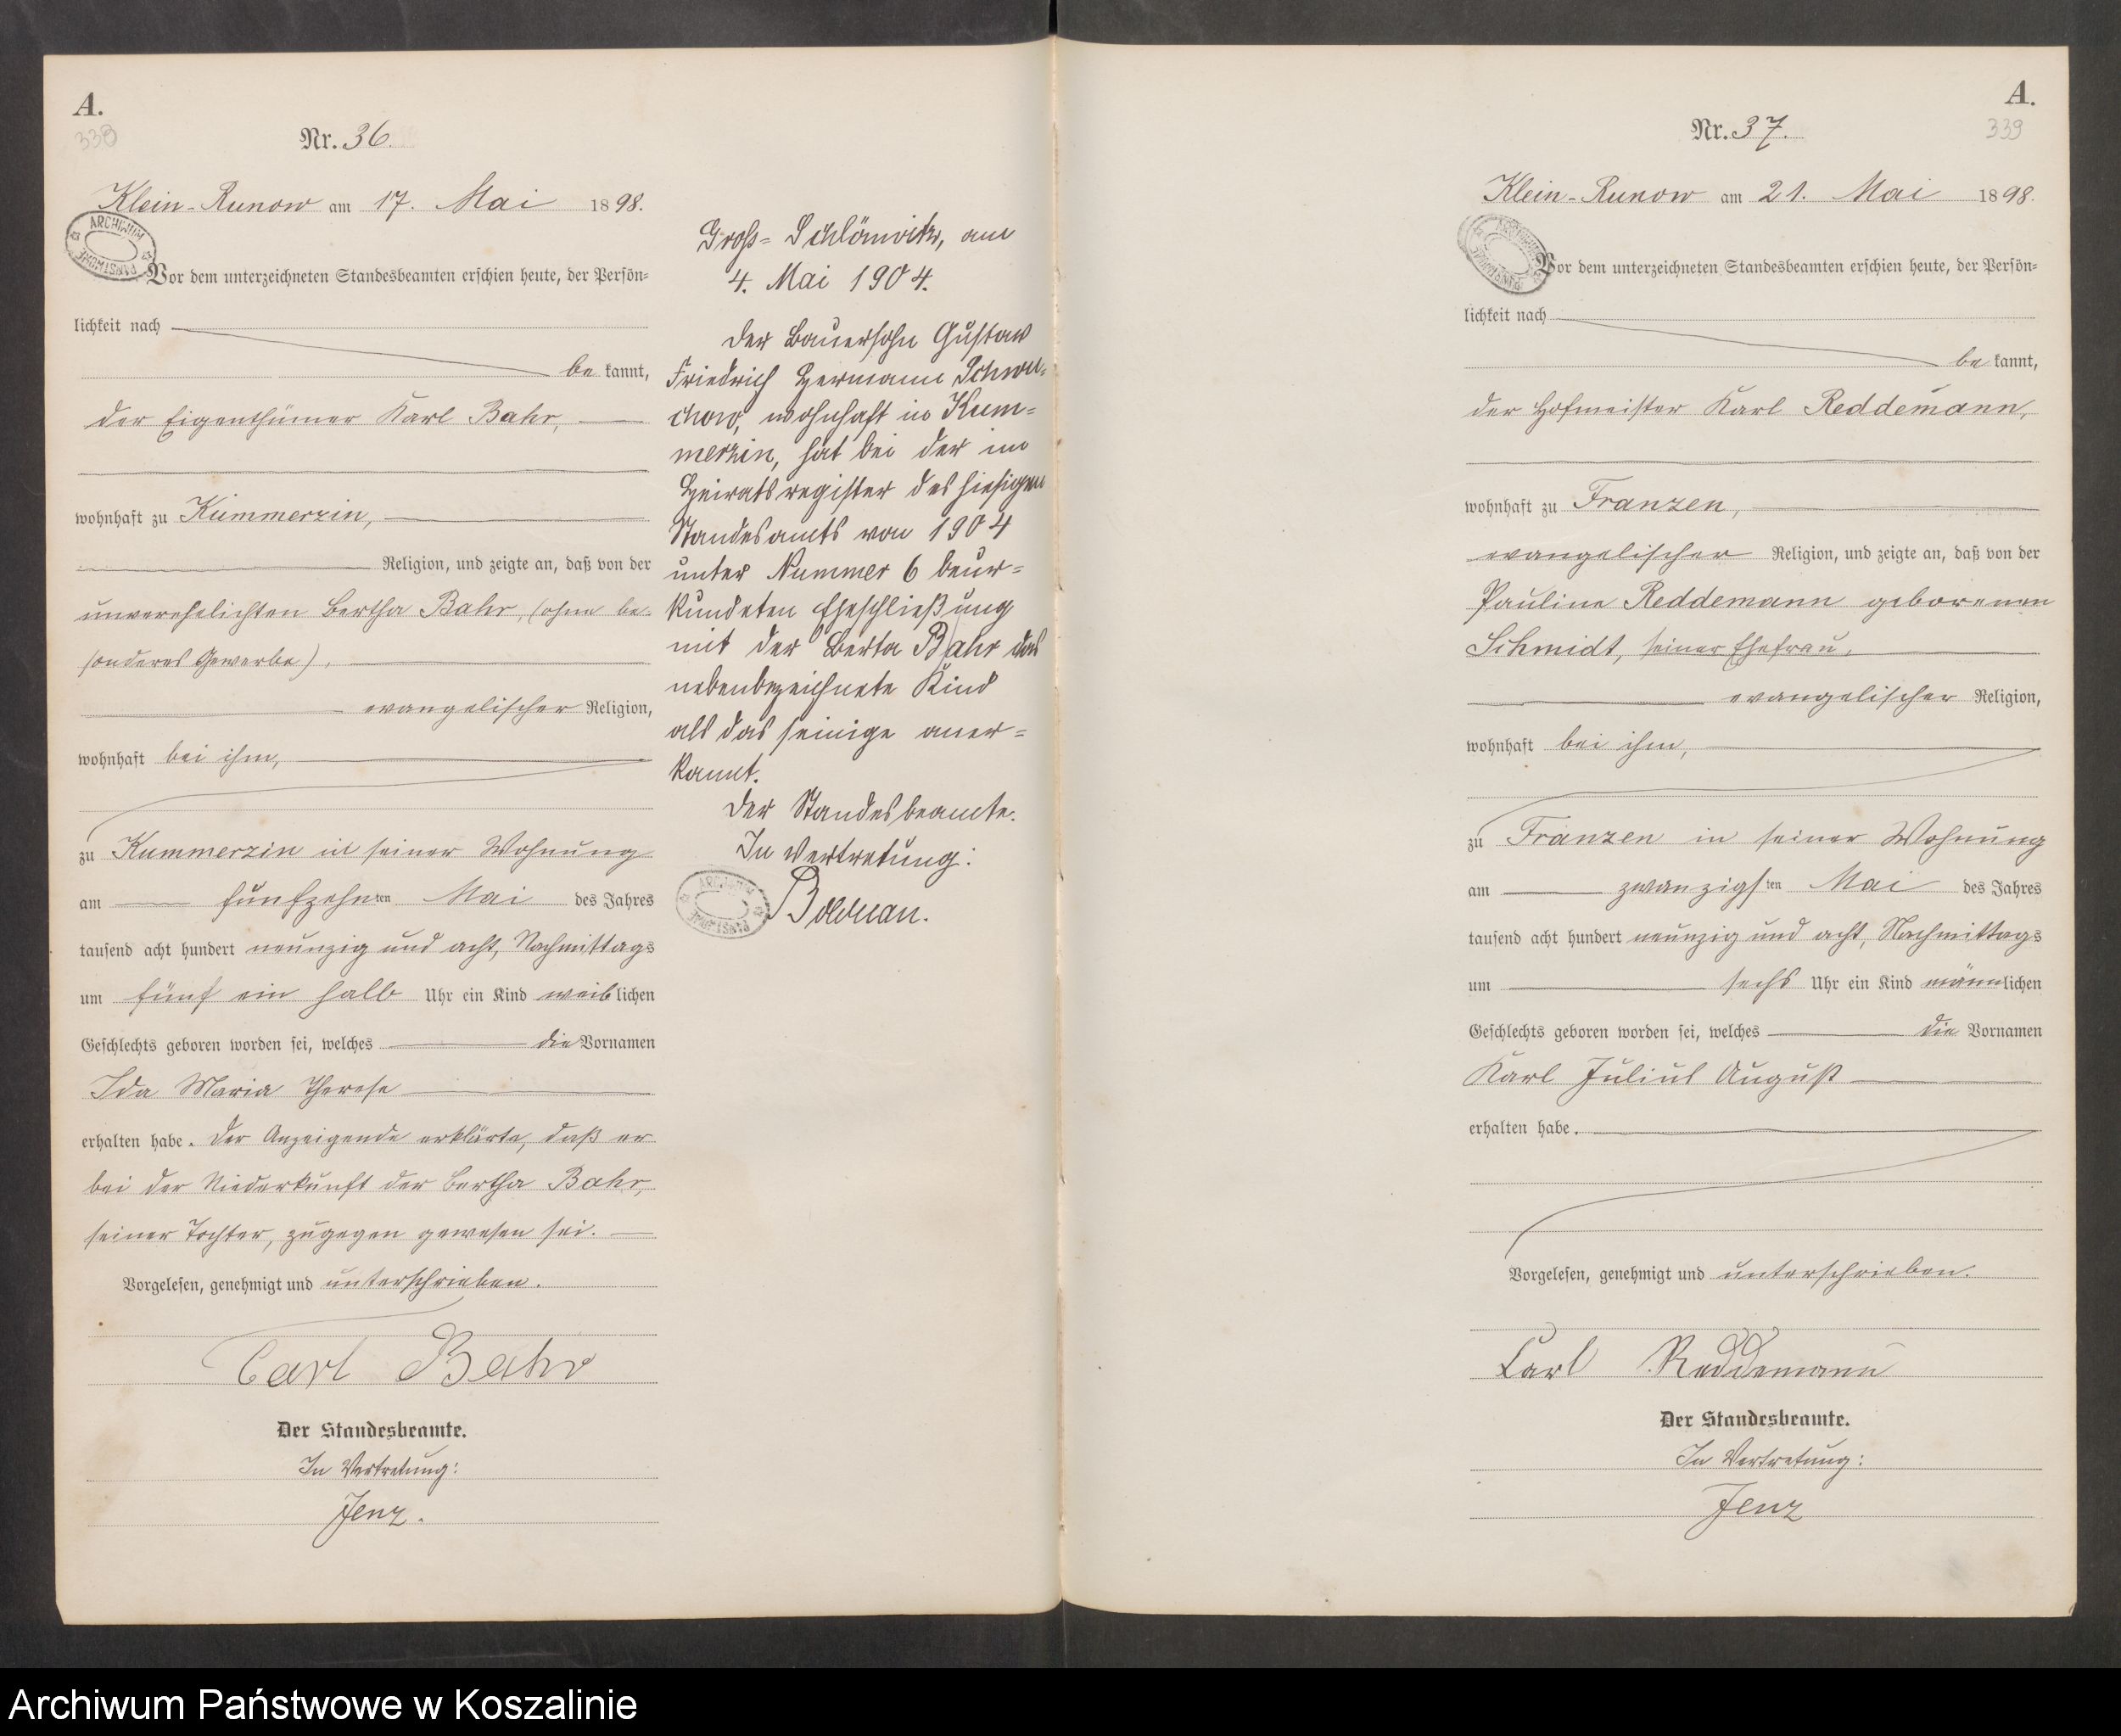 A.
338
Nr. 36.
Klein-Runow am 17. Mai 1898.
ARCHIWUM PAŃSTWOWE
Vor dem unterzeichneten Standesbeamten erschien heute, der Persön=
lichkeit nach
be kannt,
der Eigenthümer Karl Bahr,
wohnhaft zu Kummerzin,
Religion, und zeigte an, daß von der
unverehelichten Bertha Bahr, (ohne be-
sonderes Gewerbe),
evangelischer Religion,
wohnhaft bei ihm,
zu Kummerzin in seiner Wohnung
am fünfzehnten Mai des Jahres
tausend acht hundert neunzig und acht, Nachmittags
um fünf ein halb Uhr ein Kind weiblichen
Geschlechts geboren worden sei, welches die Vornamen
Ida Maria Therese
erhalten habe. Der Anzeigende erklärte, daß er
bei der Niederkunft der Bertha Bahr,
seiner Tochter, zugegen gewesen sei.
Vorgelesen, genehmigt und unterschrieben.
Carl Bahr
Der Standesbeamte.
In Vertretung:
Jenz.
Groß=Schlönwitz, am
4. Mai 1904.
Der Bauersohn Gustav
Friedrich Hermann Schwu=
chow, wohnhaft in Kum=
merzin, hat bei der im
Heiratsregister des hiesigen
Standesamts von 1904
unter Nummer 6 beur=
kundeten Eheschließung
mit der Berta Bahr das
nebenbezeichnete Kind
als das seinige aner=
kannt.
Der Standesbeamte.
In Vertretung:
Bolduan.
ARCHIWUM PAŃSTWOWE
A.
339
Nr. 37.
Klein-Runow am 21. Mai 1898.
ARCHIWUM PAŃSTWOWE
Vor dem unterzeichneten Standesbeamten erschien heute, der Persön=
lichkeit nach
be kannt,
der Hofmeister Karl Reddemann,
wohnhaft zu Franzen,
evangelischer Religion, und zeigte an, daß von der
Pauline Reddemann geborenen
Schmidt, seiner Ehefrau,
evangelischer Religion,
wohnhaft bei ihm,
zu Franzen in seiner Wohnung
am zwanzigsten Mai des Jahres
tausend acht hundert neunzig und acht, Nachmittags
um sechs Uhr ein Kind männlichen
Geschlechts geboren worden sei, welches die Vornamen
Karl Julius August
erhalten habe.
Vorgelesen, genehmigt und unterschrieben.
Carl Reddemann
Der Standesbeamte.
In Vertretung:
Jenz
Archiwum Państwowe w Koszalinie